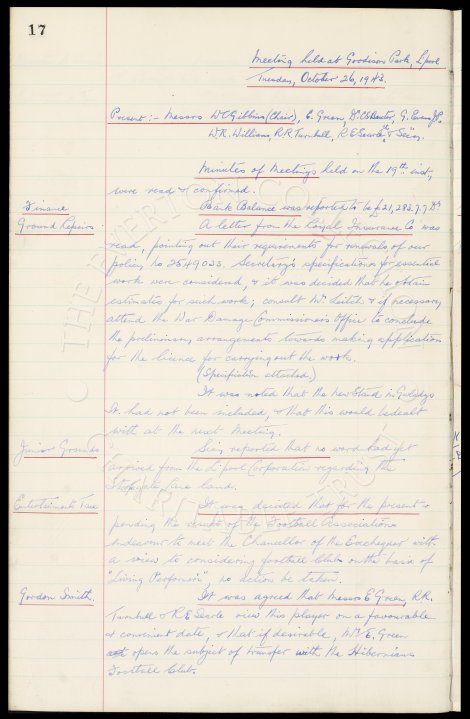 17
Meeting held at Goodison Park, Lpool
Tuesday, October 26, 1943.
Present :- Messrs W.C. Gibbins (Chair), E. Green, Dr. C.S. Baxter, G. Evans J.P.
W.R. Williams, R.R. Turnbull, R.E. Searle, & Secy.
Minutes of Meetings held on the 19th inst,
were read & confirmed.
Finance
Bank Balance was reported to be £21,282.7.7 Dr
Ground Repairs.
A letter from the Royal Insurance Co was
read, pointing out their requirements for renewals of our
policy no 2549033. Secretary's specifications for essential
work were considered, & it was decided that he obtain
estimates for such work; consult Mr Leitch & if necessary
attend the War Damage Commissioners Office to conclude
the preliminary arrangements towards making application
for the licence for carrying out the work.
(Specification attached)
It was noted that the new Stand in Gwladys
St. had not been included, & that this would be dealt
with at the next meeting.
Junior Grounds
Secy reported that no word had yet
arrived from the L'pool Corporation regarding the
Lane land.
Entertainments Tax
It was decided that for the present &
pending the result of the Football Associations
endeavour to meet the Chancellor of the Exchequer with
a view to considering football clubs on the basis of
"Living Performers", no action be taken.
Gordon Smith.
It was agreed that Messrs E. Green, R.R.
Turnbull & R.E. Searle view this player on a favourable
& convenient date, & that if desirable, Mr. E. Green
opens the subject of transfer with the Hibernians
Football Club.